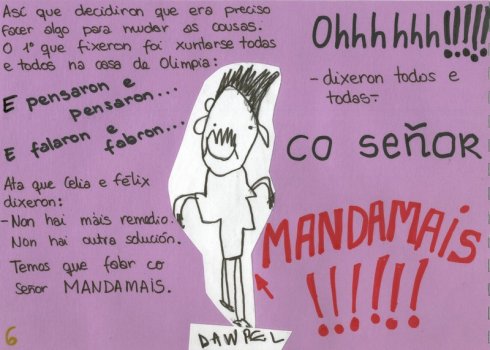 Así que decidiron que era preciso
facer algo para mudar as cousas.
O 1º que fixeron foi xuntarse todas
e todos na casa de Olimpia:
E pensaron e
pensaron...
E falaron e
falaron...
Ata que Celia e félix
dixeron:
- Non hai máis remedio.
Non hai outra solución.
Temos que falar co
señor MANDAMAIS.
6
DAWPEL
Ohhhhhh!!!!!
- dixeron todos e
todas-.
CO SEÑOR
MANDAMAIS
!!!!!!